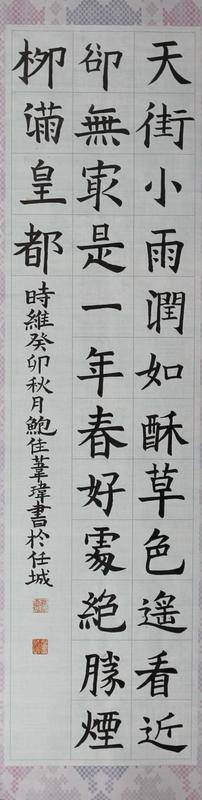 天街小雨潤如酥草色遥看近
卻無㝡是一年春好處絕勝煙
柳滿皇都
時維癸卯秋月鮑佳葦瑋書於任城